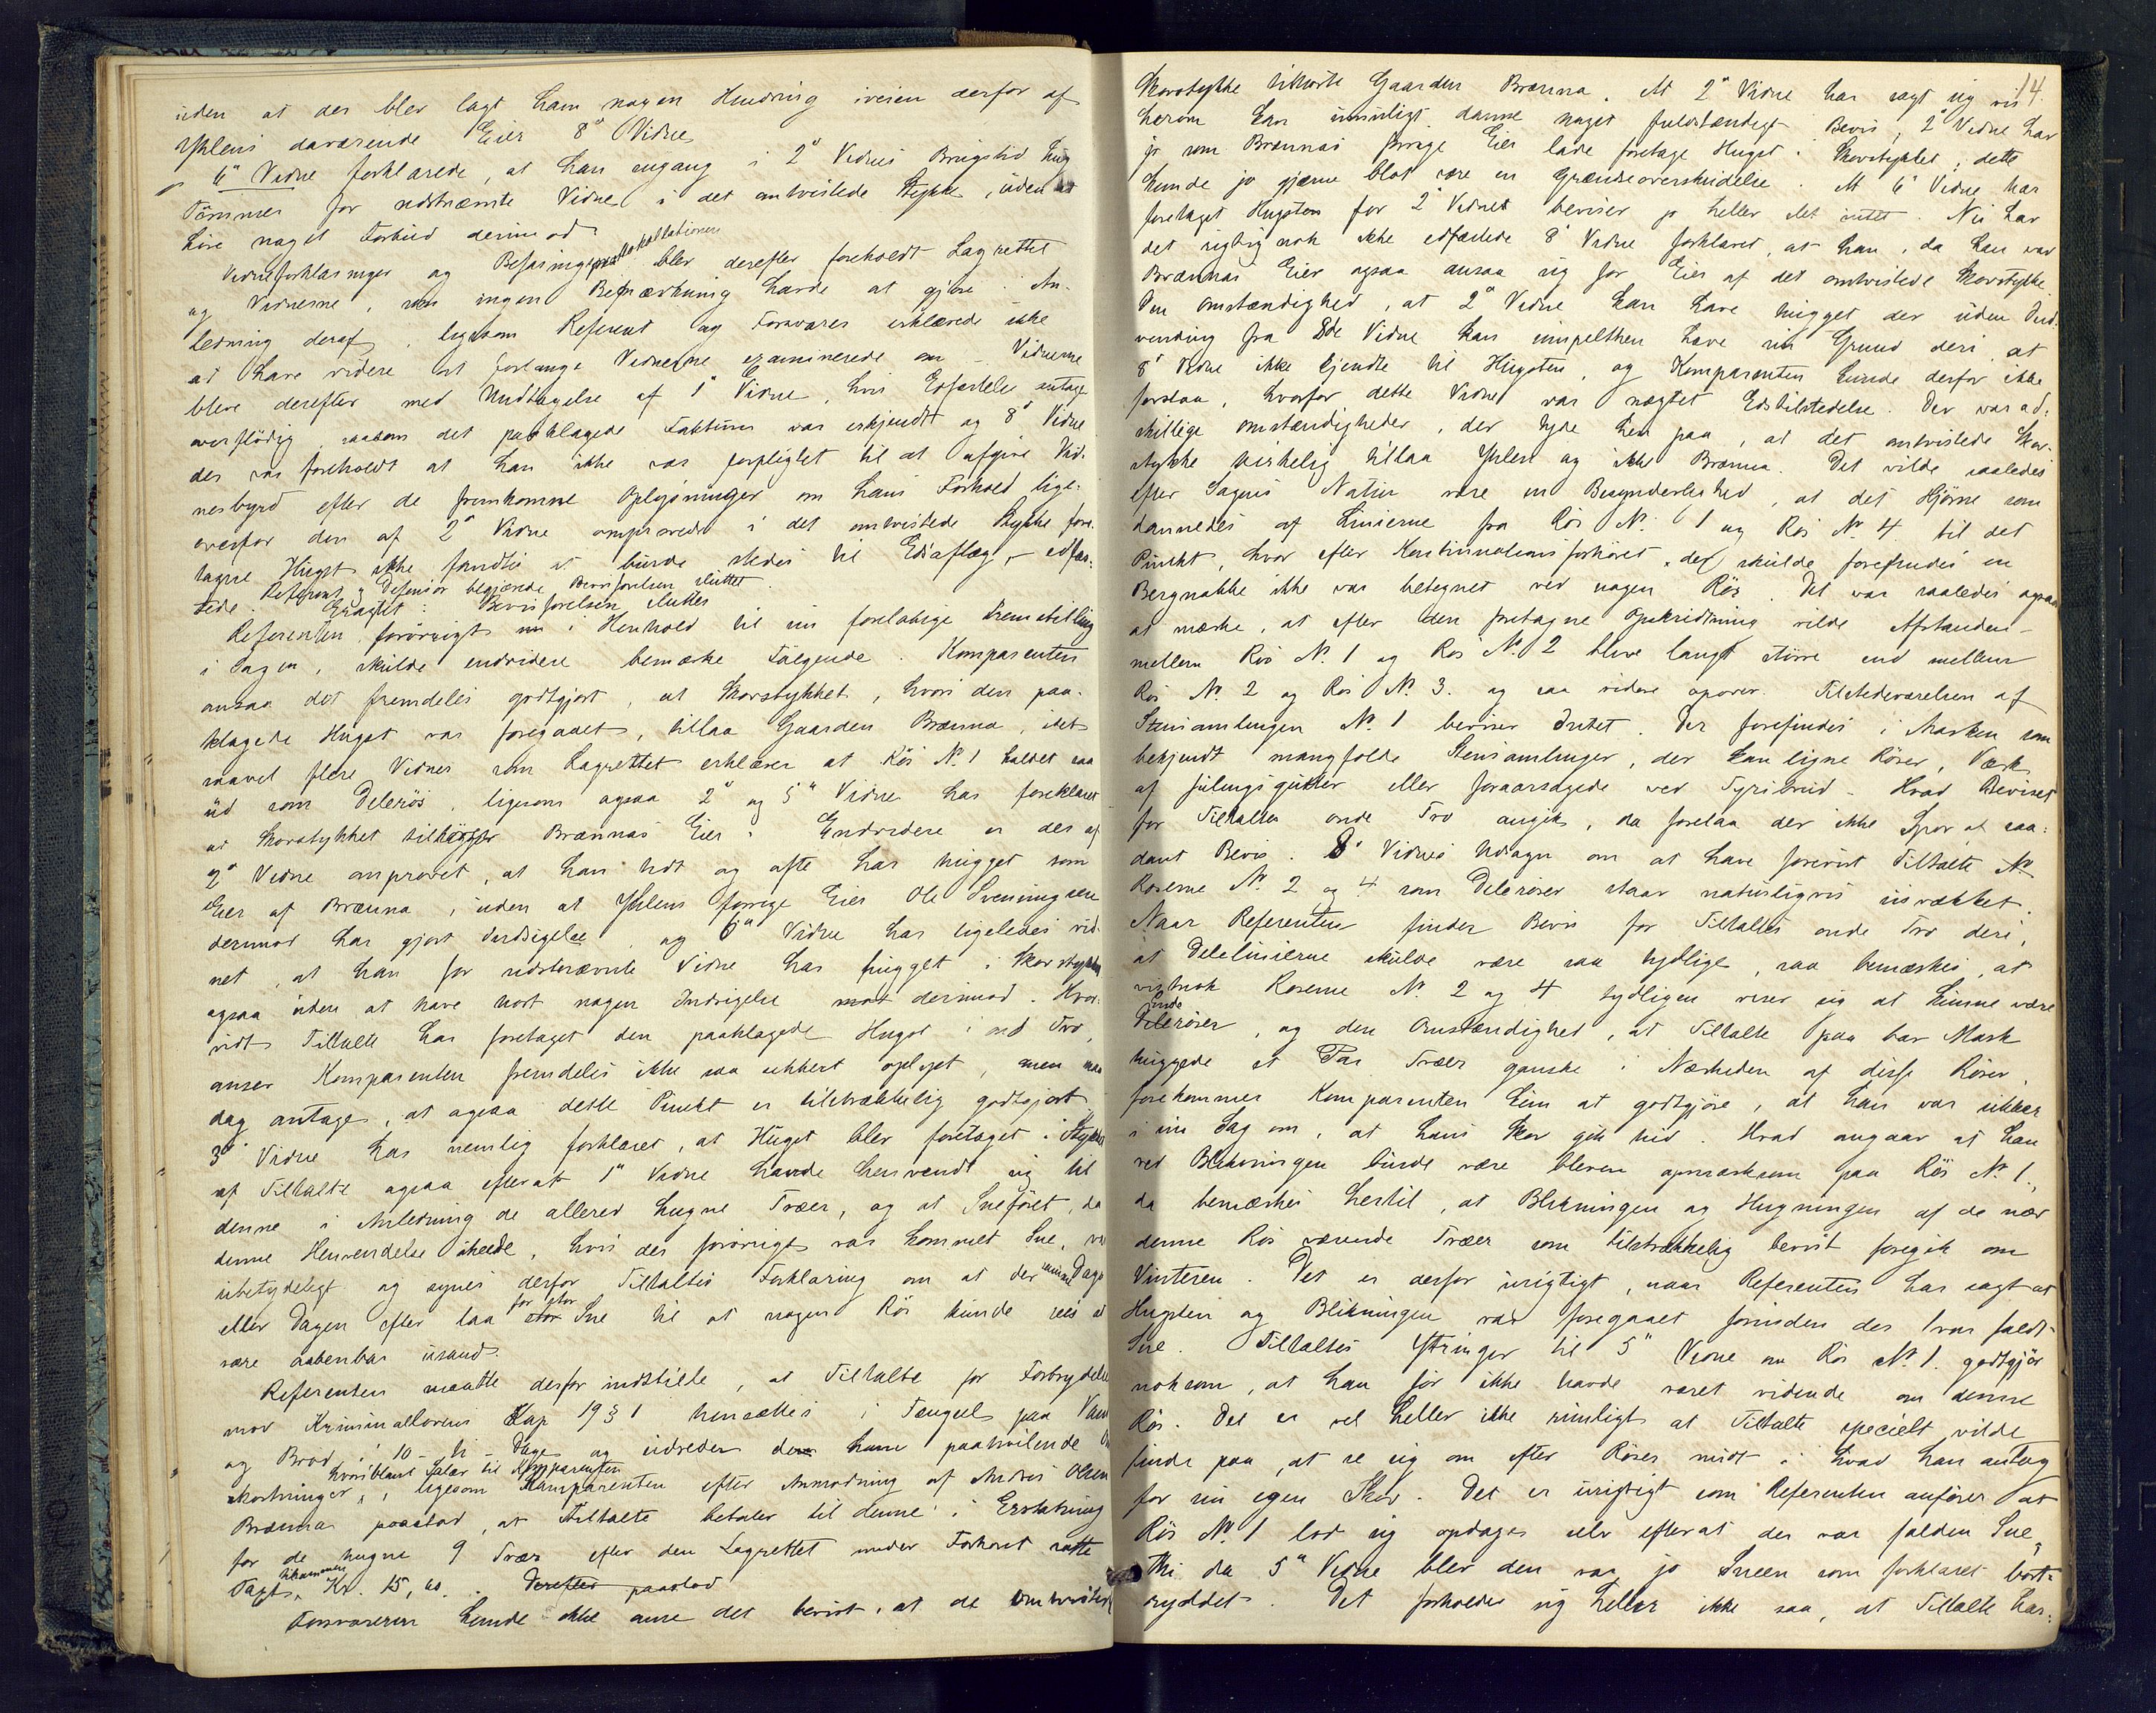 uden at der blev lagt ham nogen Hindring iveien derfor af
Yhlens daværende Eier 8" Vidne
6" Vidne forklarede, at han engang i 2" Vidnes Brugstid hug
Tømmer for sidstnævnte Vidne i det omtvistede Stykke, uden at
høre noget Forbud derimod.
Vidneforklaringer og Befaringen blev derefter foreholdt Lagrettet
og Vidnerne, som ingen Bemærkning havde at gjøre i An-
ledning deraf, ligesom Referent og Forsvarer erklærede ikke
at have videre at forlange Vidnerne examinerede om – Vidnerne
bleve derefter med Undtagelse af 1" Vidne, hvis Edfæstelse antoges
overflødig, saasom det paaklagede Faktum var erkjendt og 8" Vidne
der var foreholdt at han ikke var forpligtet til at afgive Vid-
nesbyrd efter de fremkomne Oplysninger om hans Forhold lige-
overfor den af 2" Vidne omprovede i det omtvistede Stykke fore-
tagne Hugst ikke fandtes at burde stedes til Edsaflæg, – edfæ-
stede. Referent og Defensor begjærede Bevisførelsen sluttet.
Eragtet: Bevisførelsen sluttes
Referenten forøvrigt i Henhold til sin foreløbige Fremstilling
i Sagen, skulde endvidere bemærke Følgende. Komparenten
ansaa det fremdeles godtgjort, at Skovstykket, hvori den paa-
klagede Hugst var foregaaet, tillaa Gaarden Brænna, idet
saavel flere Vidner som Lagrettet erklærer at Rös No. 1 saa
ud som Delerös, ligesom ogsaa 2" og 5" Vidne har forklaret
at Skovstykket tilhører Brænnas Eier. Endvidere er det af
2" Vidne omprovet, at han tidt og ofte har hugget som
Eier af Brænna, uden at Yhlens forrige Eier Ole Svenningsen
derimod har gjort Indsigelse, og 6" Vidne har ligeledes vid-
net, at han for sidstnævnte Vidne har hugget i Skovstykket
ogsaa uden at have hørt nogen Indsigelse derimod. Hvor-
vidt Tiltalte har foretaget den paaklagede Hugst i ond Tro,
anser Komparenten fremdeles ikke saa sikkert oplyst, men
dog antages, at ogsaa dette Punkt er tilstrækkelig godtgjort
3" Vidne har nemlig forklaret, at Hugst blev foretaget i Stykket
af Tiltalte ogsaa efterat 1" Vidne havde henvendt sig til
denne i Anledning de allerede hugne Træer, og at Sneføret, da
denne Henvendelse skede, hvis der forøvrigt var kommet Sne, var
ubetydeligt og synes derfor Tiltaltes Forklaring om at der samme Dage
eller Dagen efter laa for stor Sne til at nogen Rös kunde sees at
være aabenbar usand.
Referenten maatte derfor indstille, at Tiltalte for Forbrydelse
mod Kriminallovens Kap 19 § 1 hensættes i Fængsel paa Vand
og Brød i 10 – ti – Dage og udreder ham paahvilende Om-
kostninger, hvoriblandt Salær til Komparenten, ligesom Komparenten efter Anmodning af Andres Olsen
Brænna paastod, at Tiltalte betaler til denne i Erstatning
for de hugne 9 Træer efter den Lagrettet under Forhøret satte
Taxt, Kr. 15,60.
Forsvareren kunde ikke anse det bevist, at det omtvistede
14.
Skovstykke tilhørte Gaarden Brænna. At 2" Vidne har sagt sig vis
herom kan umuligt danne noget fuldstændigt Bevis, 2" Vidne har
jo som Brænnas forrige Eier ladet foretage Hugst i Skovstykket; dette
kunde jo gjerne blot være en Grændseoverskridelse. At 6" Vidne har
foretaget Hugsten for 2" Vidnet beviser jo heller slet intet. Nu har
det rigtig nok ikke edfæstede 8" Vidne forklaret, at han, da han var
Brænnas Eier ogsaa ansaa sig for Eier af det omtvistede Skovstykke.
Den Omstændighed, at 2" Vidne kan have hugget der uden Ind-
vending fra 8de Vidne kan simpelthen have sin Grund deri, at
8" Vidne ikke kjendte til Hugsten, og Komparenten kunde derfor ikke
forstaa, hvorfor dette Vidne var nægtet Edstilstedelse. Der var ad-
skillige Omstændigheder, der tyde hen paa, at det omtvistede Skov-
stykke virkelig tillaa Yhlen og ikke Brænna. Det vilde saaledes
efter Sagens Natur være en Besynderlighed, at det Hjørne som
dannedes af Linierne fra Rös No. 1 og Rös No. 4 til det
Punkt, hvor efter Kontinuationsforhøret, der skulde forefindes en
Bergnakke ikke var betegnet ved nogen Rös. Det var saaledes ogsaa
at mærke, at efter den foretagne Opskridtning vilde Afstanden
mellem Rös No. 1 og Rös No. 2 blive langt større end mellem
Rös No. 2 og Rös No. 3. og saa videre opover. Tilstedeværelsen af
Stensamlingen No. 1 beviser Intet. Der forefindes i Marken som
bekjendt mangfolde Stensamlinger, der kan ligne Röser, Værk
af eller foraarsagede ved Tyribrud. Hvad Beviset
for Tiltaltes onde Tro angik, da forelaa der ikke Spor af saa-
dant Bevis. 8" Vidnes Udsagn om at have forevist Tiltalte
Röserne No. 2 og 4 som Deleröser staar naturligvis usvækket.
Naar Referenten finder Bevis for Tiltaltes onde Tro deri,
at Delelinierne skulde være saa tydlige, saa bemærkes, at
vistnok Röserne No. 2 og 4 tydligen viser sig at kunne være
Deleröser, og den Omstændighed, at Tiltalte paa bar Mark
huggede et Par Træer ganske i Nærheden af disse Röser,
forekommer Komparenten kun at godtgjøre, at han var sikker
i sin Sag om, at hans Skov gik hid. Hvad angaar at han
ved Blikningen burde være bleven opmærksom paa Rös No. 1.,
da bemærkes hertil, at Blikningen og Hugningen af de nær
denne Rös værende Træer som tilstrækkelig bevist foregik om
Vinteren. Det er derfor urigtigt, naar Referenten har sagt at
Hugsten og Blikningen var foregaaet forinden der var faldt
Sne. Tiltaltes Ytringer til 5" Vidne om Rös No. 1. godtgjör
noksom, at han før ikke havde været vidende om denne
Rös. Det er vel heller ikke rimeligt at Tiltalte specielt vilde
finde paa, at se sig om efter Röser midt i hvad han antog
for sin egen Skov. Det er urigtigt som Referenten anfører at
Rös No. 1 lod sig opdage selv efterat der var falden Sne,
thi da 5" Vidne blev den var jo Sneen som forklaret bort-
ryddet. Det forholder sig heller ikke saa, at Tiltalte har